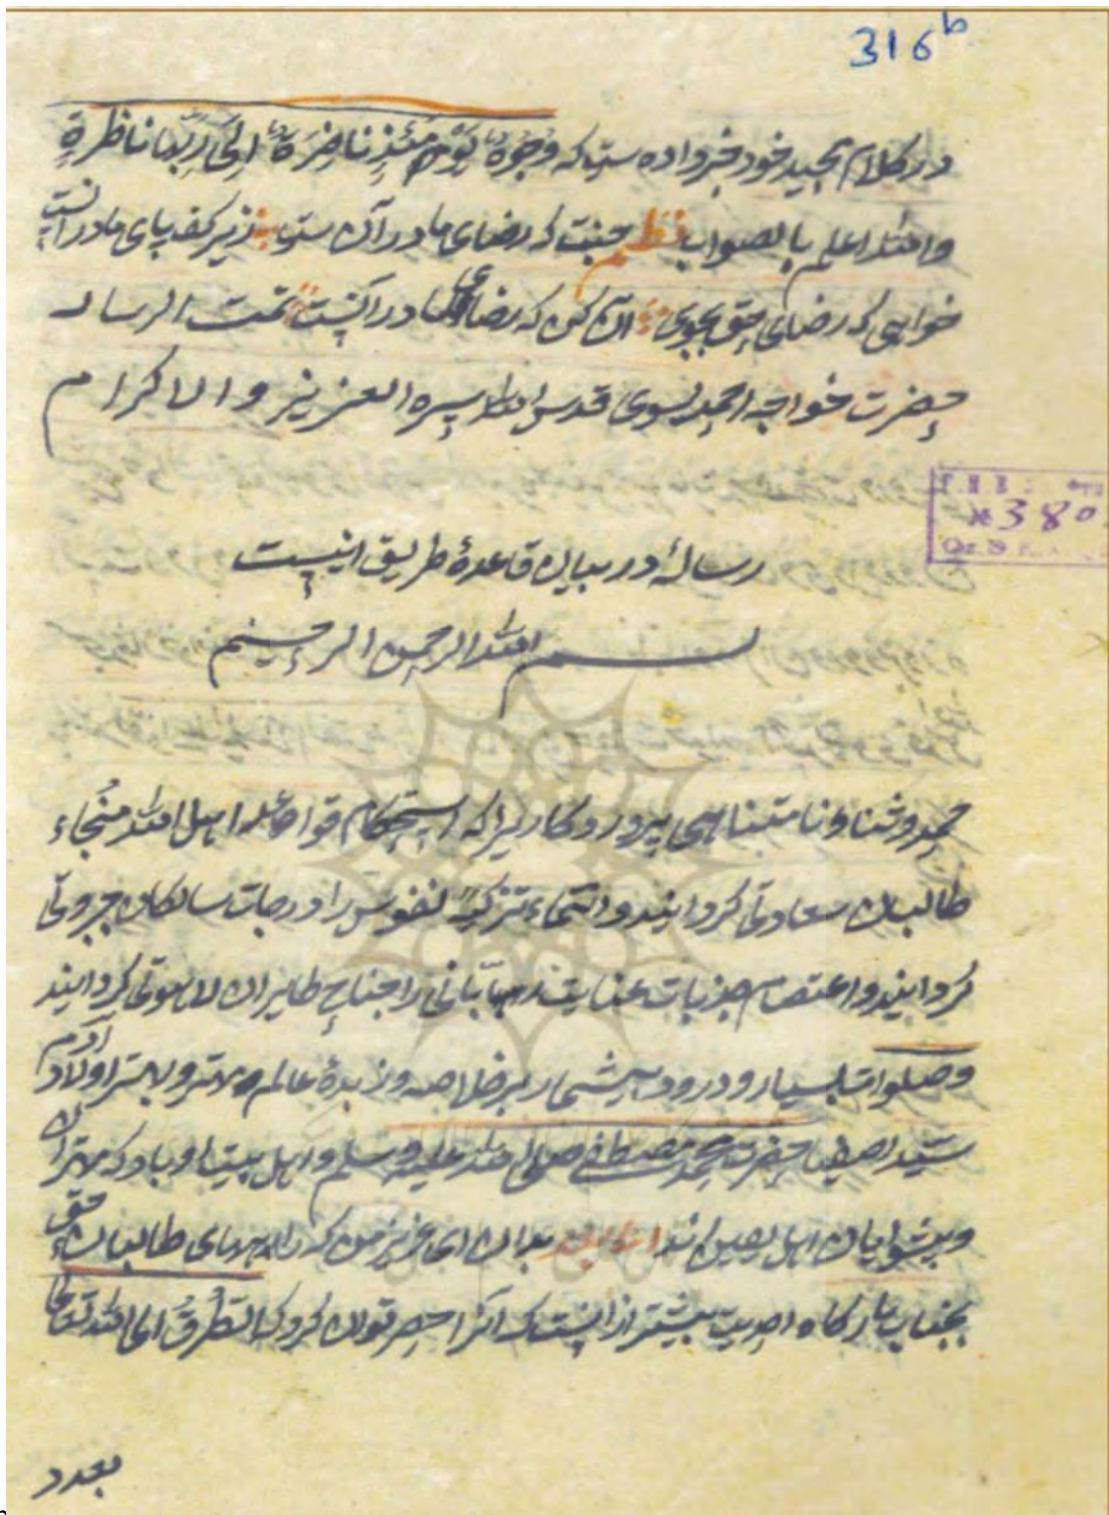 316b
در کلام مجید خود خبر داده ست که وُجُوهٌ یَوْمَئِذٍ نَاضِرَة اِلَیٰ رَبِّهَا ناظرةٍ
والله اعلم بالصواب نظم جنت که رضای ما در آن ست زیر کف پای مادرانست
خواهی که رضای حق بجوی آن کن که رضای مادرانست تمت الرساله
حضرت خواجه احمد یسوی قدس الله سره العزیز والاکرام
№ 380
رساله در بیان قاعدهٔ طریق اینست
بسم الله الرحمن الرحیم
حمد و ثنا و نامتناهی پروردکاریرا که استحکام قواعد اهل الله منجاء
طالبان سعادتی کردانید و انتماء تزکیهٔ نفوس را درجات سالکان جبروتی
کردانید و اعتصام جذبات عنایت را جناح طایران لاهوتی کردانید
وصلوات بسیار و درود بیشمار بر خلاصه و زبدهٔ عالم و مهتر و بهتر اولاد آدم
سید اصفیا حضرت محمد مصطفی صلی الله علیه وسلم و اهل بیت او باد که مهتران
و پیشوایان اهل یقین اند بدان ای عزیز من که راه های طالبان حق
بجناب بارکاه احدیت بیشتر از انست که آنرا حصر توان کرد که الطُرُقُ الی الله تعالی
بعدد